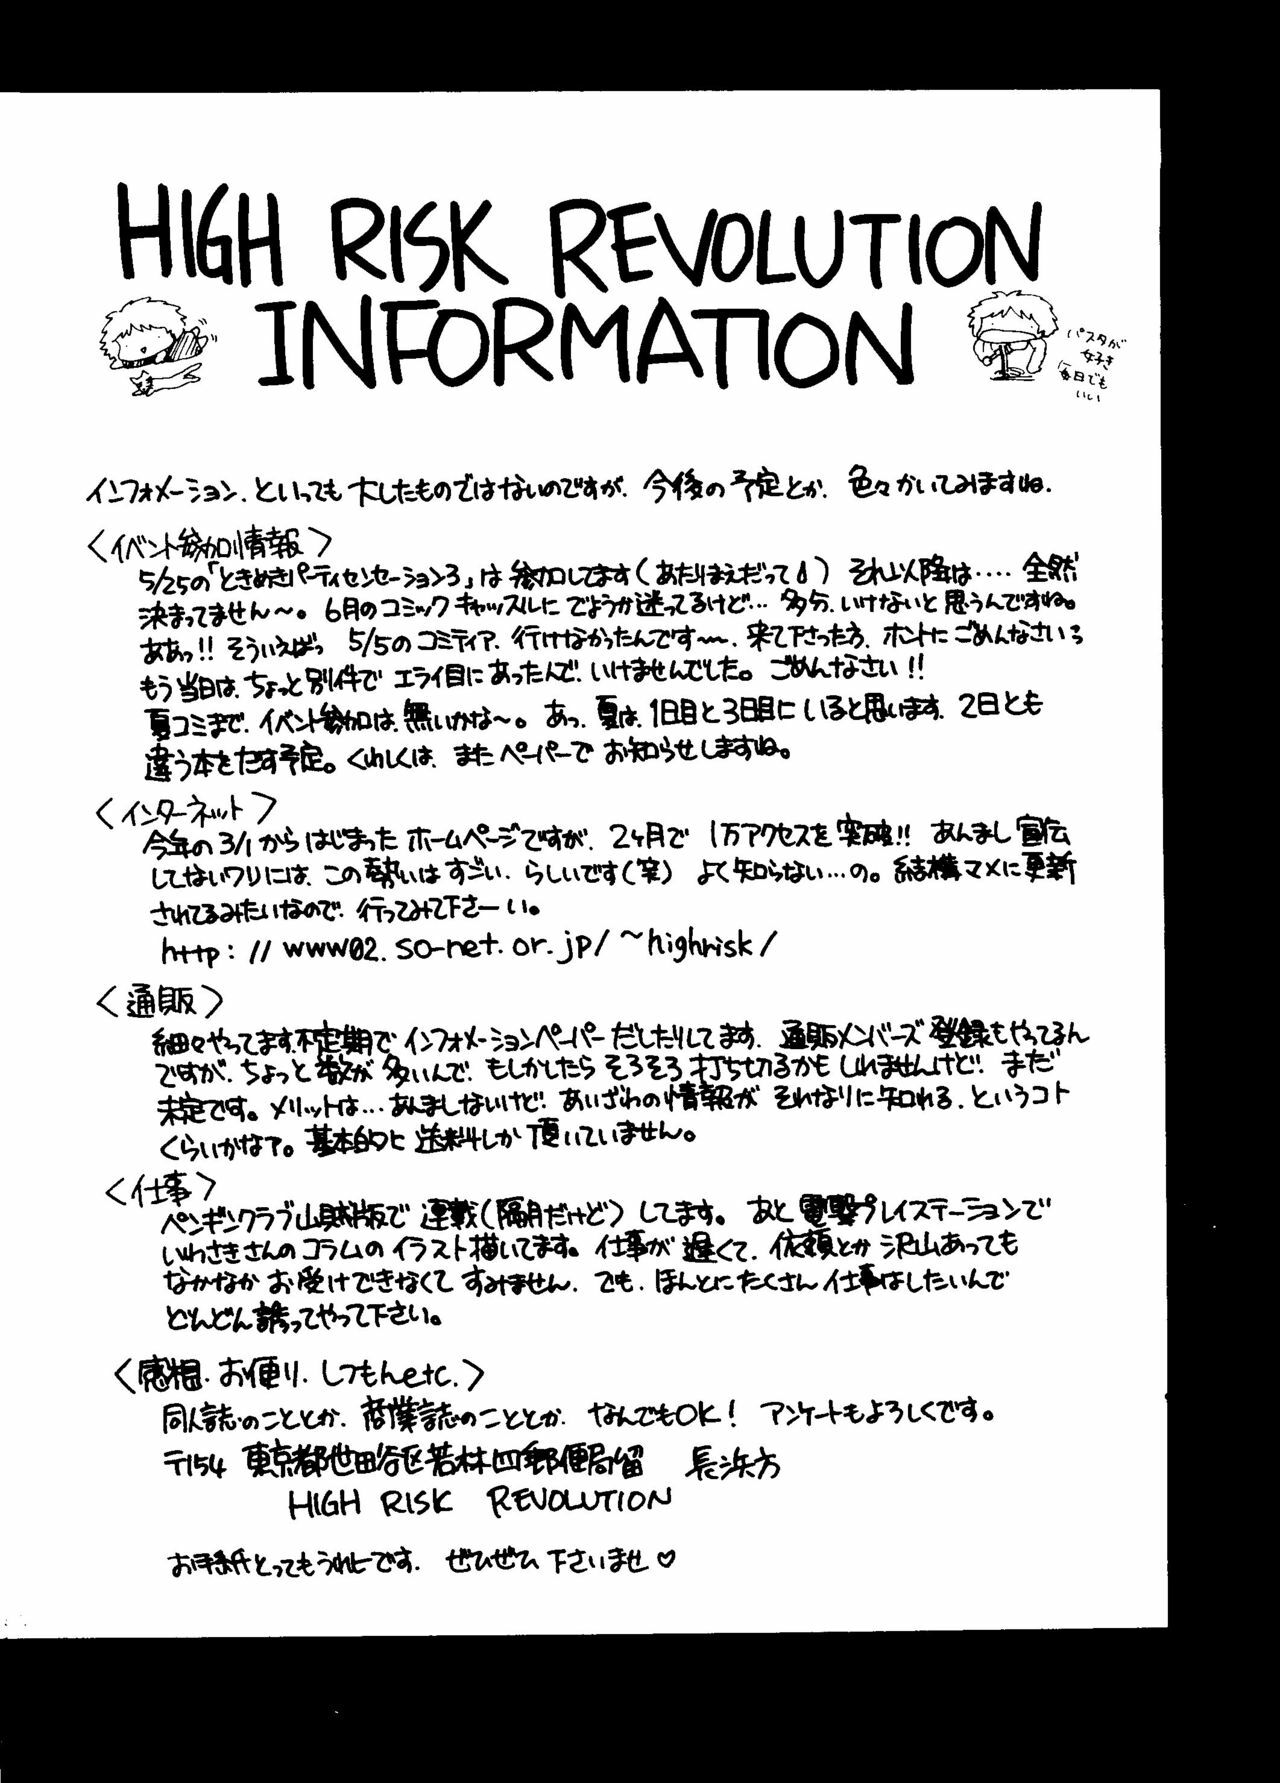 HIGH RISK REVOLUTION
INFORMATION
パスタが
好き
毎日でも
いい
インフォメーション、といっても大したものではないのですが、今後の予定とか、色々かいてみますね、
〈イベント参加情報〉
5/25の「ときめきパーティセンセーション3」は参加してます(あたりまえだって!) それ以降は‥‥全然
決まってません〜。6月のコミックキャッスルにでようか迷ってるけど…多分、いけないと思うんですね。
ああっ!!そういえばっ 5/5のコミティア、行けなかったんです〜、来て下さった方、ホントにごめんなさいう
もう当日は、ちょっと別件でエライ目にあったんで、いけませんでした。ごめんなさい!!
夏コミまで、イベント参加は、無いかな〜。あっ、夏は、1日目と3日目にいると思います、2日とも
違う本をだす予定。くわしくは、またペーパーでお知らせしますね。
〈インターネット〉
今年の3/1からはじまったホームページですが、2ヶ月で 1万アクセスを突破!! あんまし宣伝
してないワリには、この勢いはすごい、らしいです(笑) よく知らない…の。結構マメに更新
されてるみたいなので、行ってみて下さーい。
http://www02.so-net.or.jp/~highrisk/
〈通販〉
細々やってます、不定期でインフォメーションペーパーだしたりしてます、通販メンバーズ登録もやってるん
ですが、ちょっと数が多いんで、もしかしたらそろそろ打ち切るかもしれませんけど!まだ
未定です。メリットは…あんましないけど!あいざわの情報がそれなりに知れる、というコト
くらいかなア。基本的に送料しか頂いていません。
〈仕事〉
ペンギンクラブ山賊版で連載(隔月だけど)してます。あと電撃プレイステーションで
いわさきさんのコラムのイラスト描いてます。仕事が遅くて、依頼とか沢山あっても
なかなかお受けできなくてすみません、でも、ほんとにたくさん仕事はしたいんで
どんどん誘ってやって下さい。
〈感想・お便り・しつもんetc.〉
同人誌のこととか、商業誌のこととか、なんでもOK! アンケートもよろしくです。
〒154 東京都世田谷区若林四郵便局留 長浜方
HIGH RISK REVOLUTION
お手紙とってもうれしーです、ぜひぜひ下さいませ♡